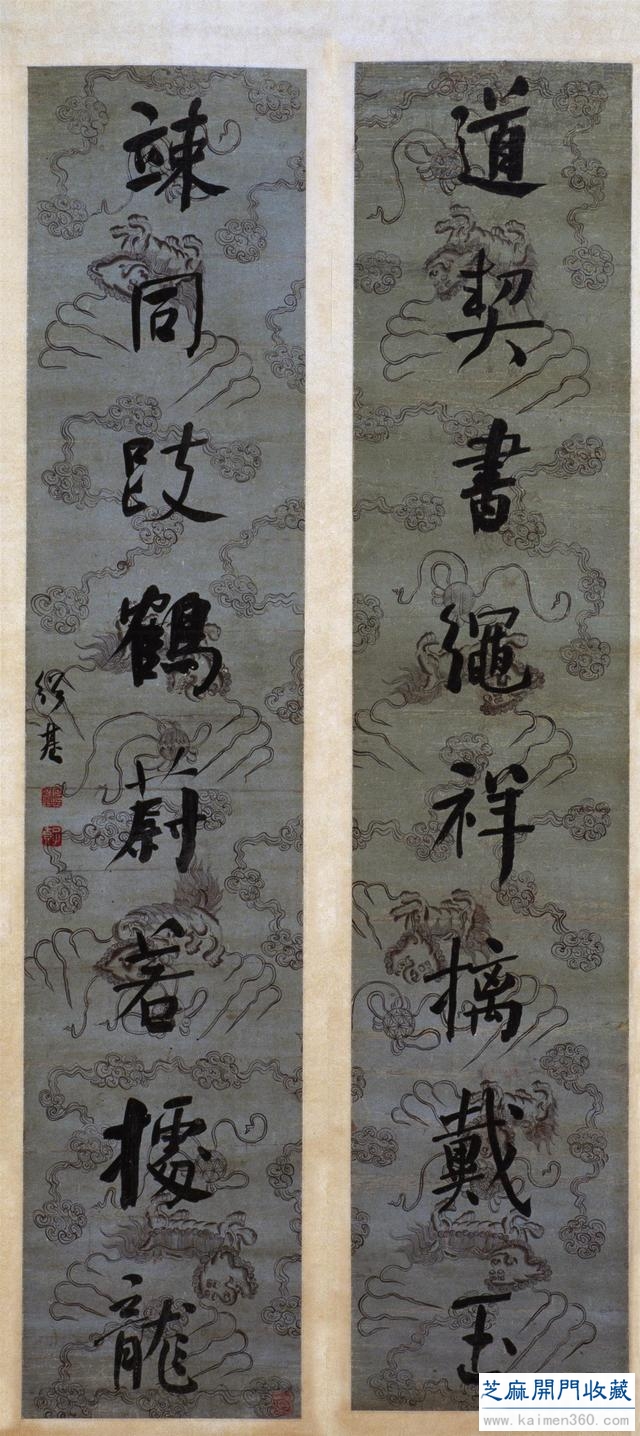 道契書繩祥摛戴玉
竦同跂鶴蔚若據龍
紹基
芝麻開門收藏
www.kaimen360.com